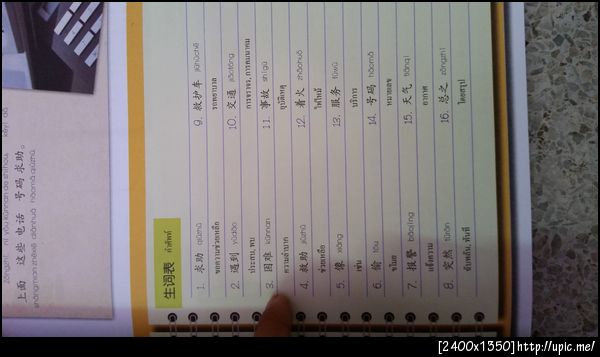 zǒngzhī, nǐ yǒu kùnnan de shíhou, kěyǐ dǎ
上面 这些 电话 号码 求助。
shàngmian zhèxiē diànhuà hàomǎ qiúzhù
生词表 คำศัพท์
1. 求助 qiúzhù
ขอความช่วยเหลือ
2. 遇到 yùdào
ประสบ, พบ
3. 困难 kùnnan
ความลำบาก
4. 救助 jiùzhù
ช่วยเหลือ
5. 像 xiàng
เช่น
6. 偷 tōu
ขโมย
7. 报警 bàojǐng
แจ้งความ
8. 突然 tūrán
ฉับพลัน, ทันที
9. 救护车 jiùhùchē
รถพยาบาล
10. 交通 jiāotōng
การจราจร, การคมนาคม
11. 事故 shìgù
อุบัติเหตุ
12. 着火 zháohuǒ
ไฟไหม้
13. 服务 fúwù
บริการ
14. 号码 hàomǎ
หมายเลข
15. 天气 tiānqì
อากาศ
16. 总之 zǒngzhī
โดยสรุป
[2400x1350]http://upic.me/